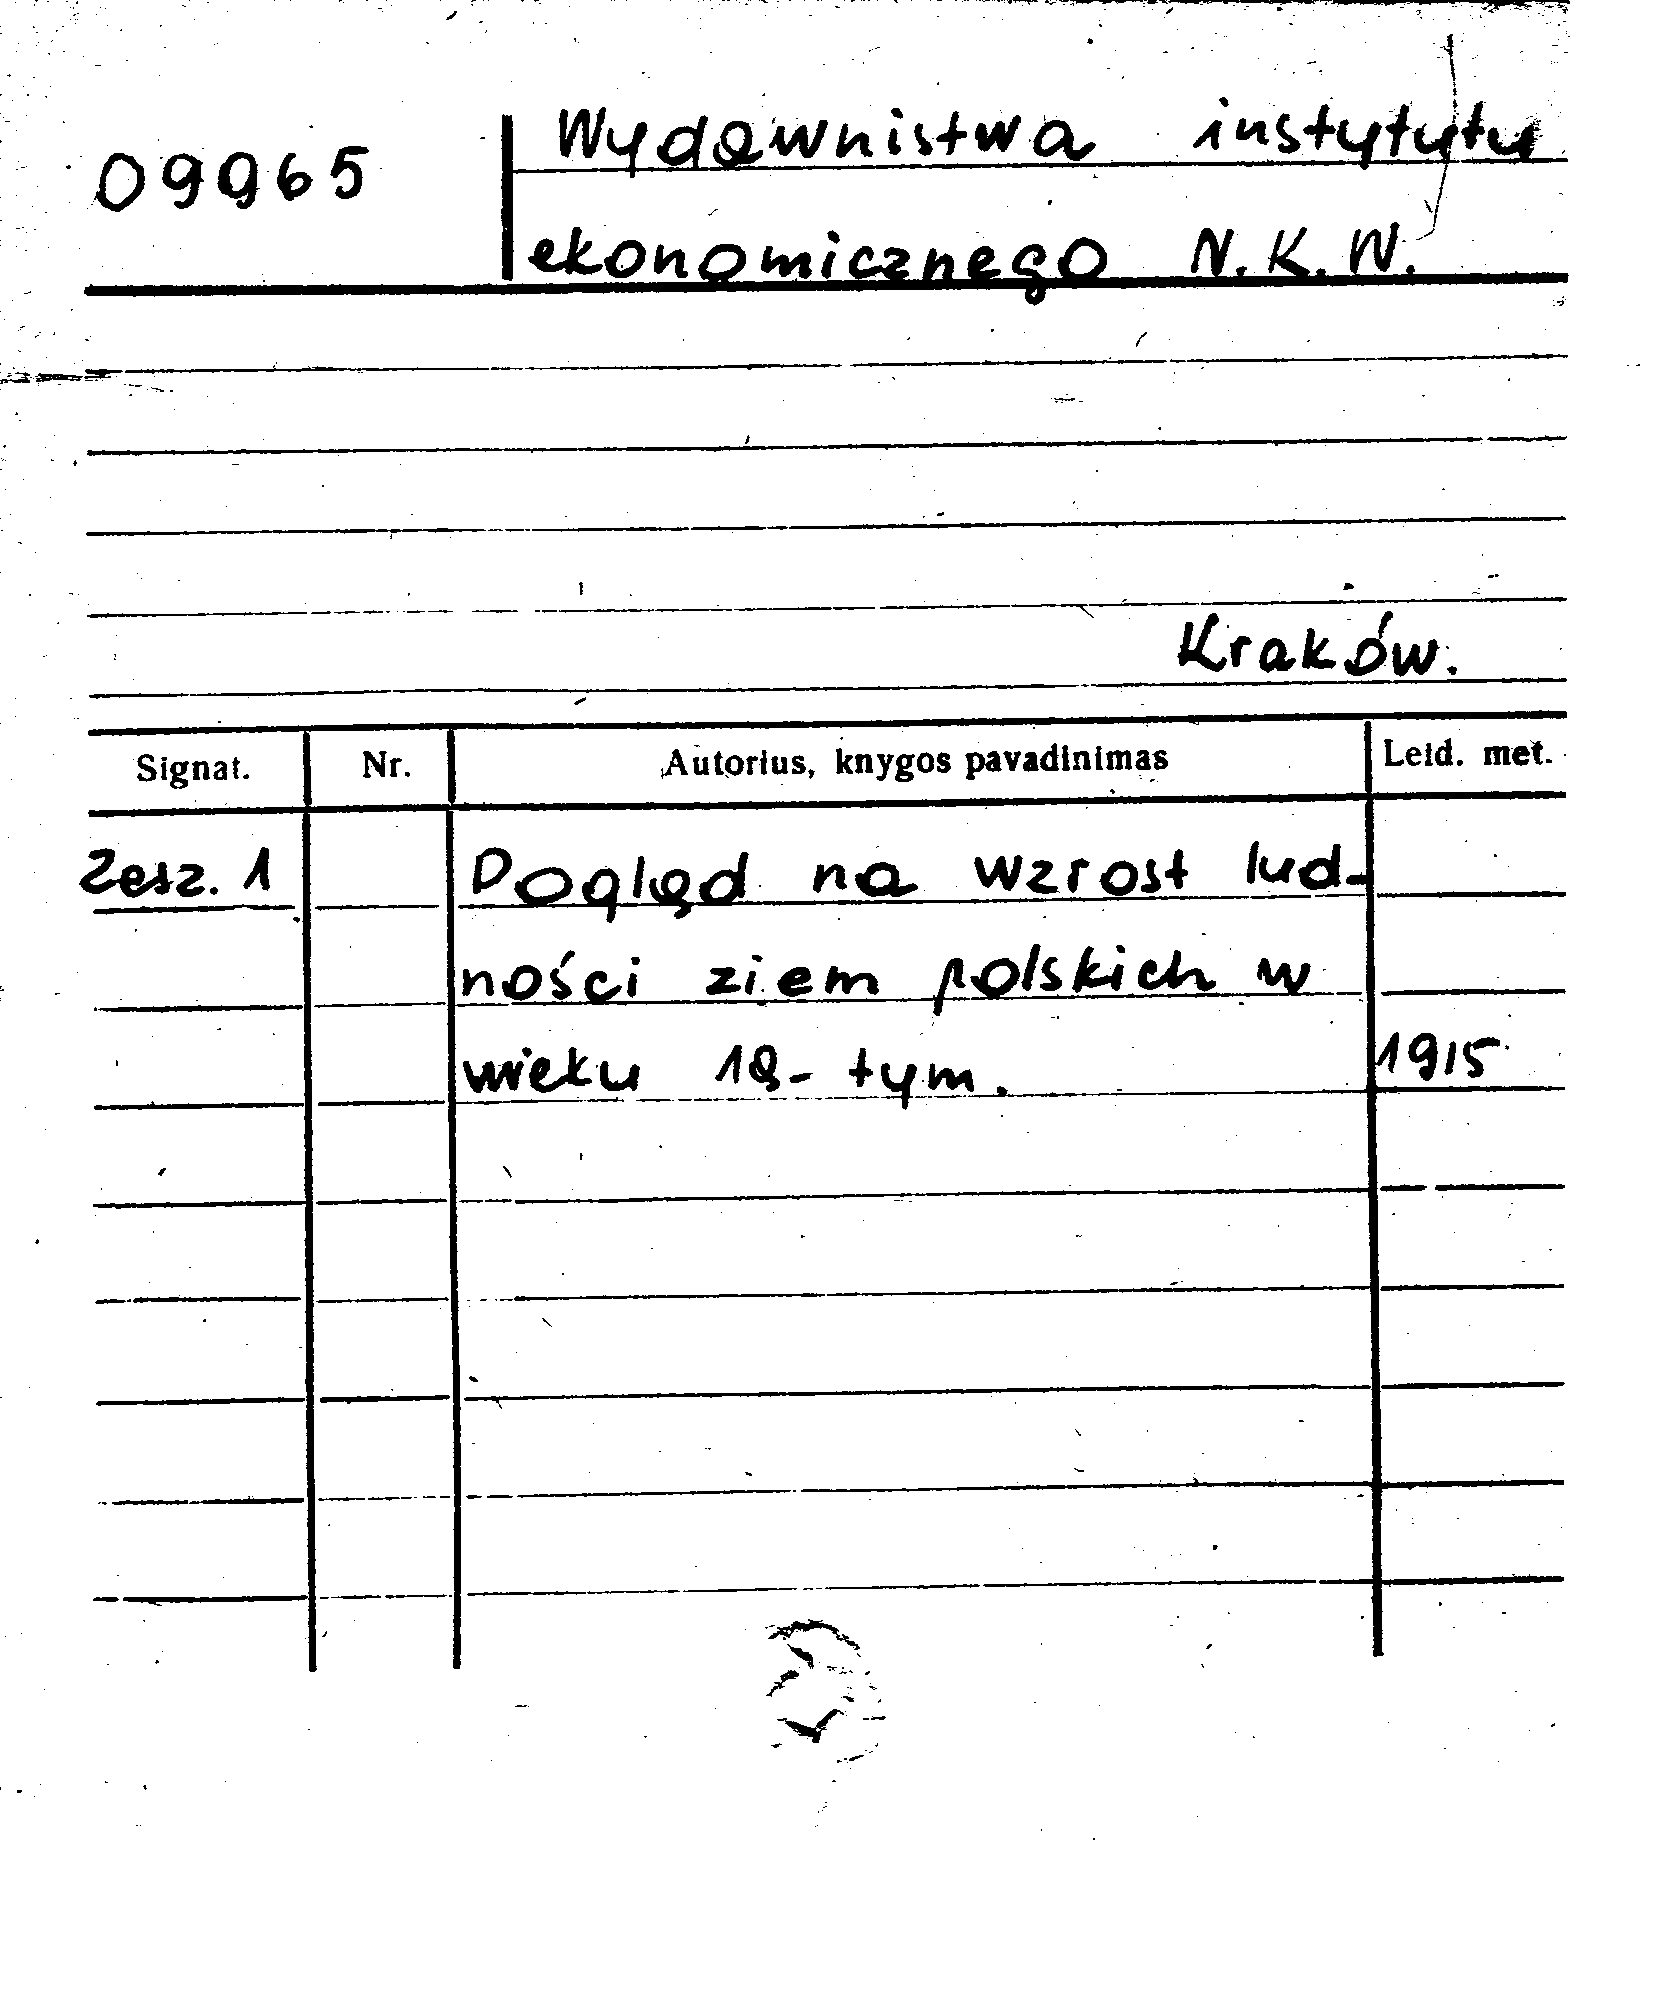 09965
Wydawnistwa instytytu
ekonomicznego N.K.W.
Kraków.
Signat. Nr. Autorius, knygos pavadinimas Leid. met.
Zesz. 1 Pogląd na wzrost lud-
ności ziem polskich w
wieku 19-tym. 1915